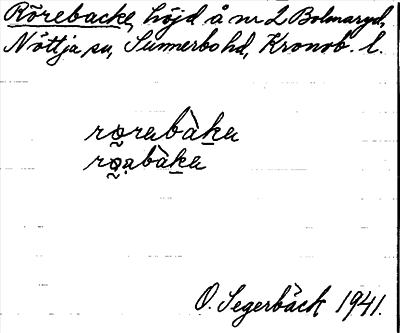 Rörebacke, höjd å nr 2 Bolmaryd,
Nöttja sn, Sunnerbo hd, Kronob. l.
rör̥abàka
rö̥abàka
O. Segerbäck 1941.